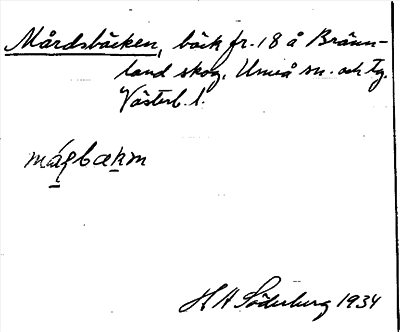 Mårdsbäcken, bäck fr. 18 å Bränn-
land skog, Umeå sn. och tg.
Västerb. l.
HA Söderberg 1934